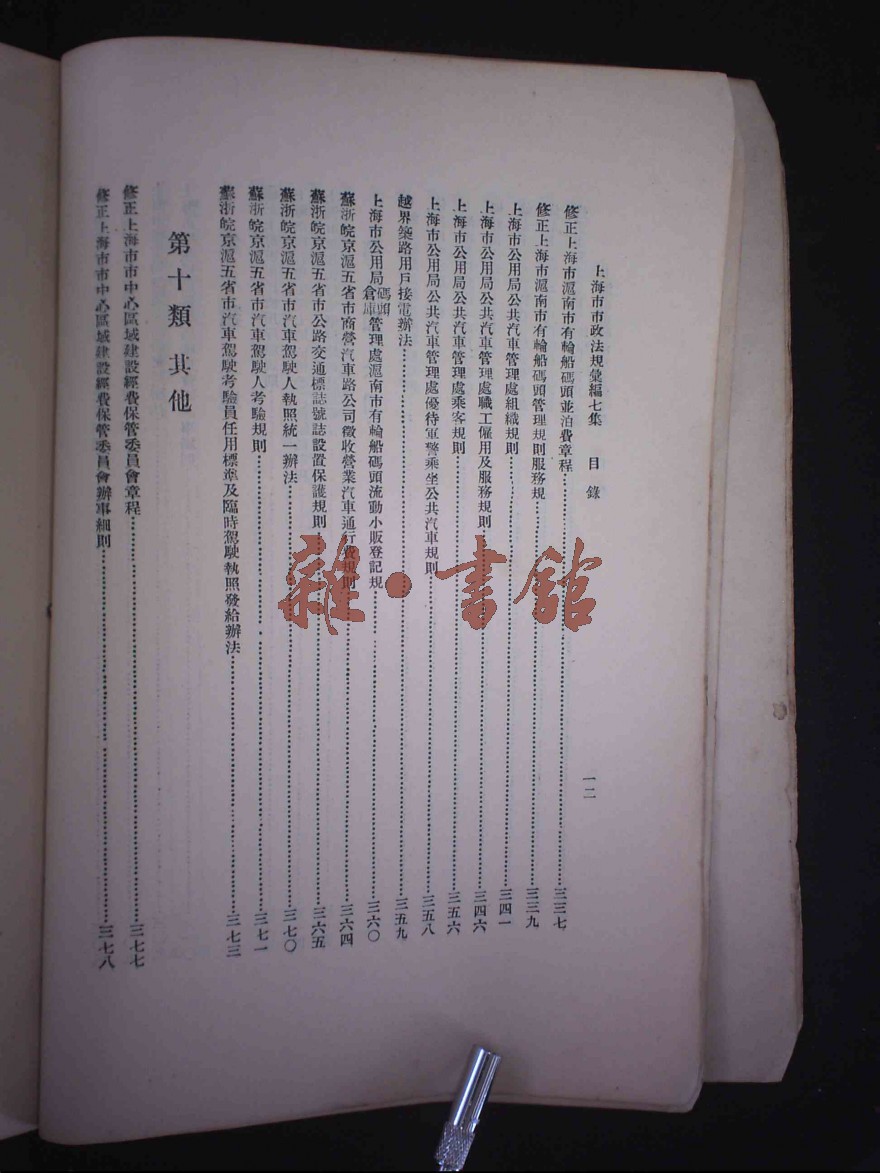 上海市市政法規彙編七集 目錄 一二
修正上海市滬南市有輪船碼頭並泊費章程 三三七
修正上海市滬南市有輪船碼頭管理規則服務規 三三九
上海市公用局公共汽車管理處組織規則 三四一
上海市公用局公共汽車管理處職工僱用及服務規則 三四六
上海市公用局公共汽車管理處乘客規則 三五六
上海市公用局公共汽車管理處優待軍警乘坐公共汽車規則 三五八
越界築路用戶接電辦法 三五九
上海市公用局碼頭倉庫管理處滬南市有輪船碼頭流動小販登記規 三六〇
蘇浙皖京滬五省市商營汽車路公司徵收營業汽車通行費規則 三六四
蘇浙皖京滬五省市公路交通標誌號誌設置保護規則 三六五
蘇浙皖京滬五省市汽車駕駛人執照統一辦法 三七〇
蘇浙皖京滬五省市汽車駕駛人考驗規則 三七一
蘇浙皖京滬五省市汽車駕駛考驗員任用標準及臨時駕駛執照發給辦法 三七三
第十類 其他
修正上海市市中心區域建設經費保管委員會章程 三七七
修正上海市市中心區域建設經費保管委員會辦事細則 三七八
雜·書館